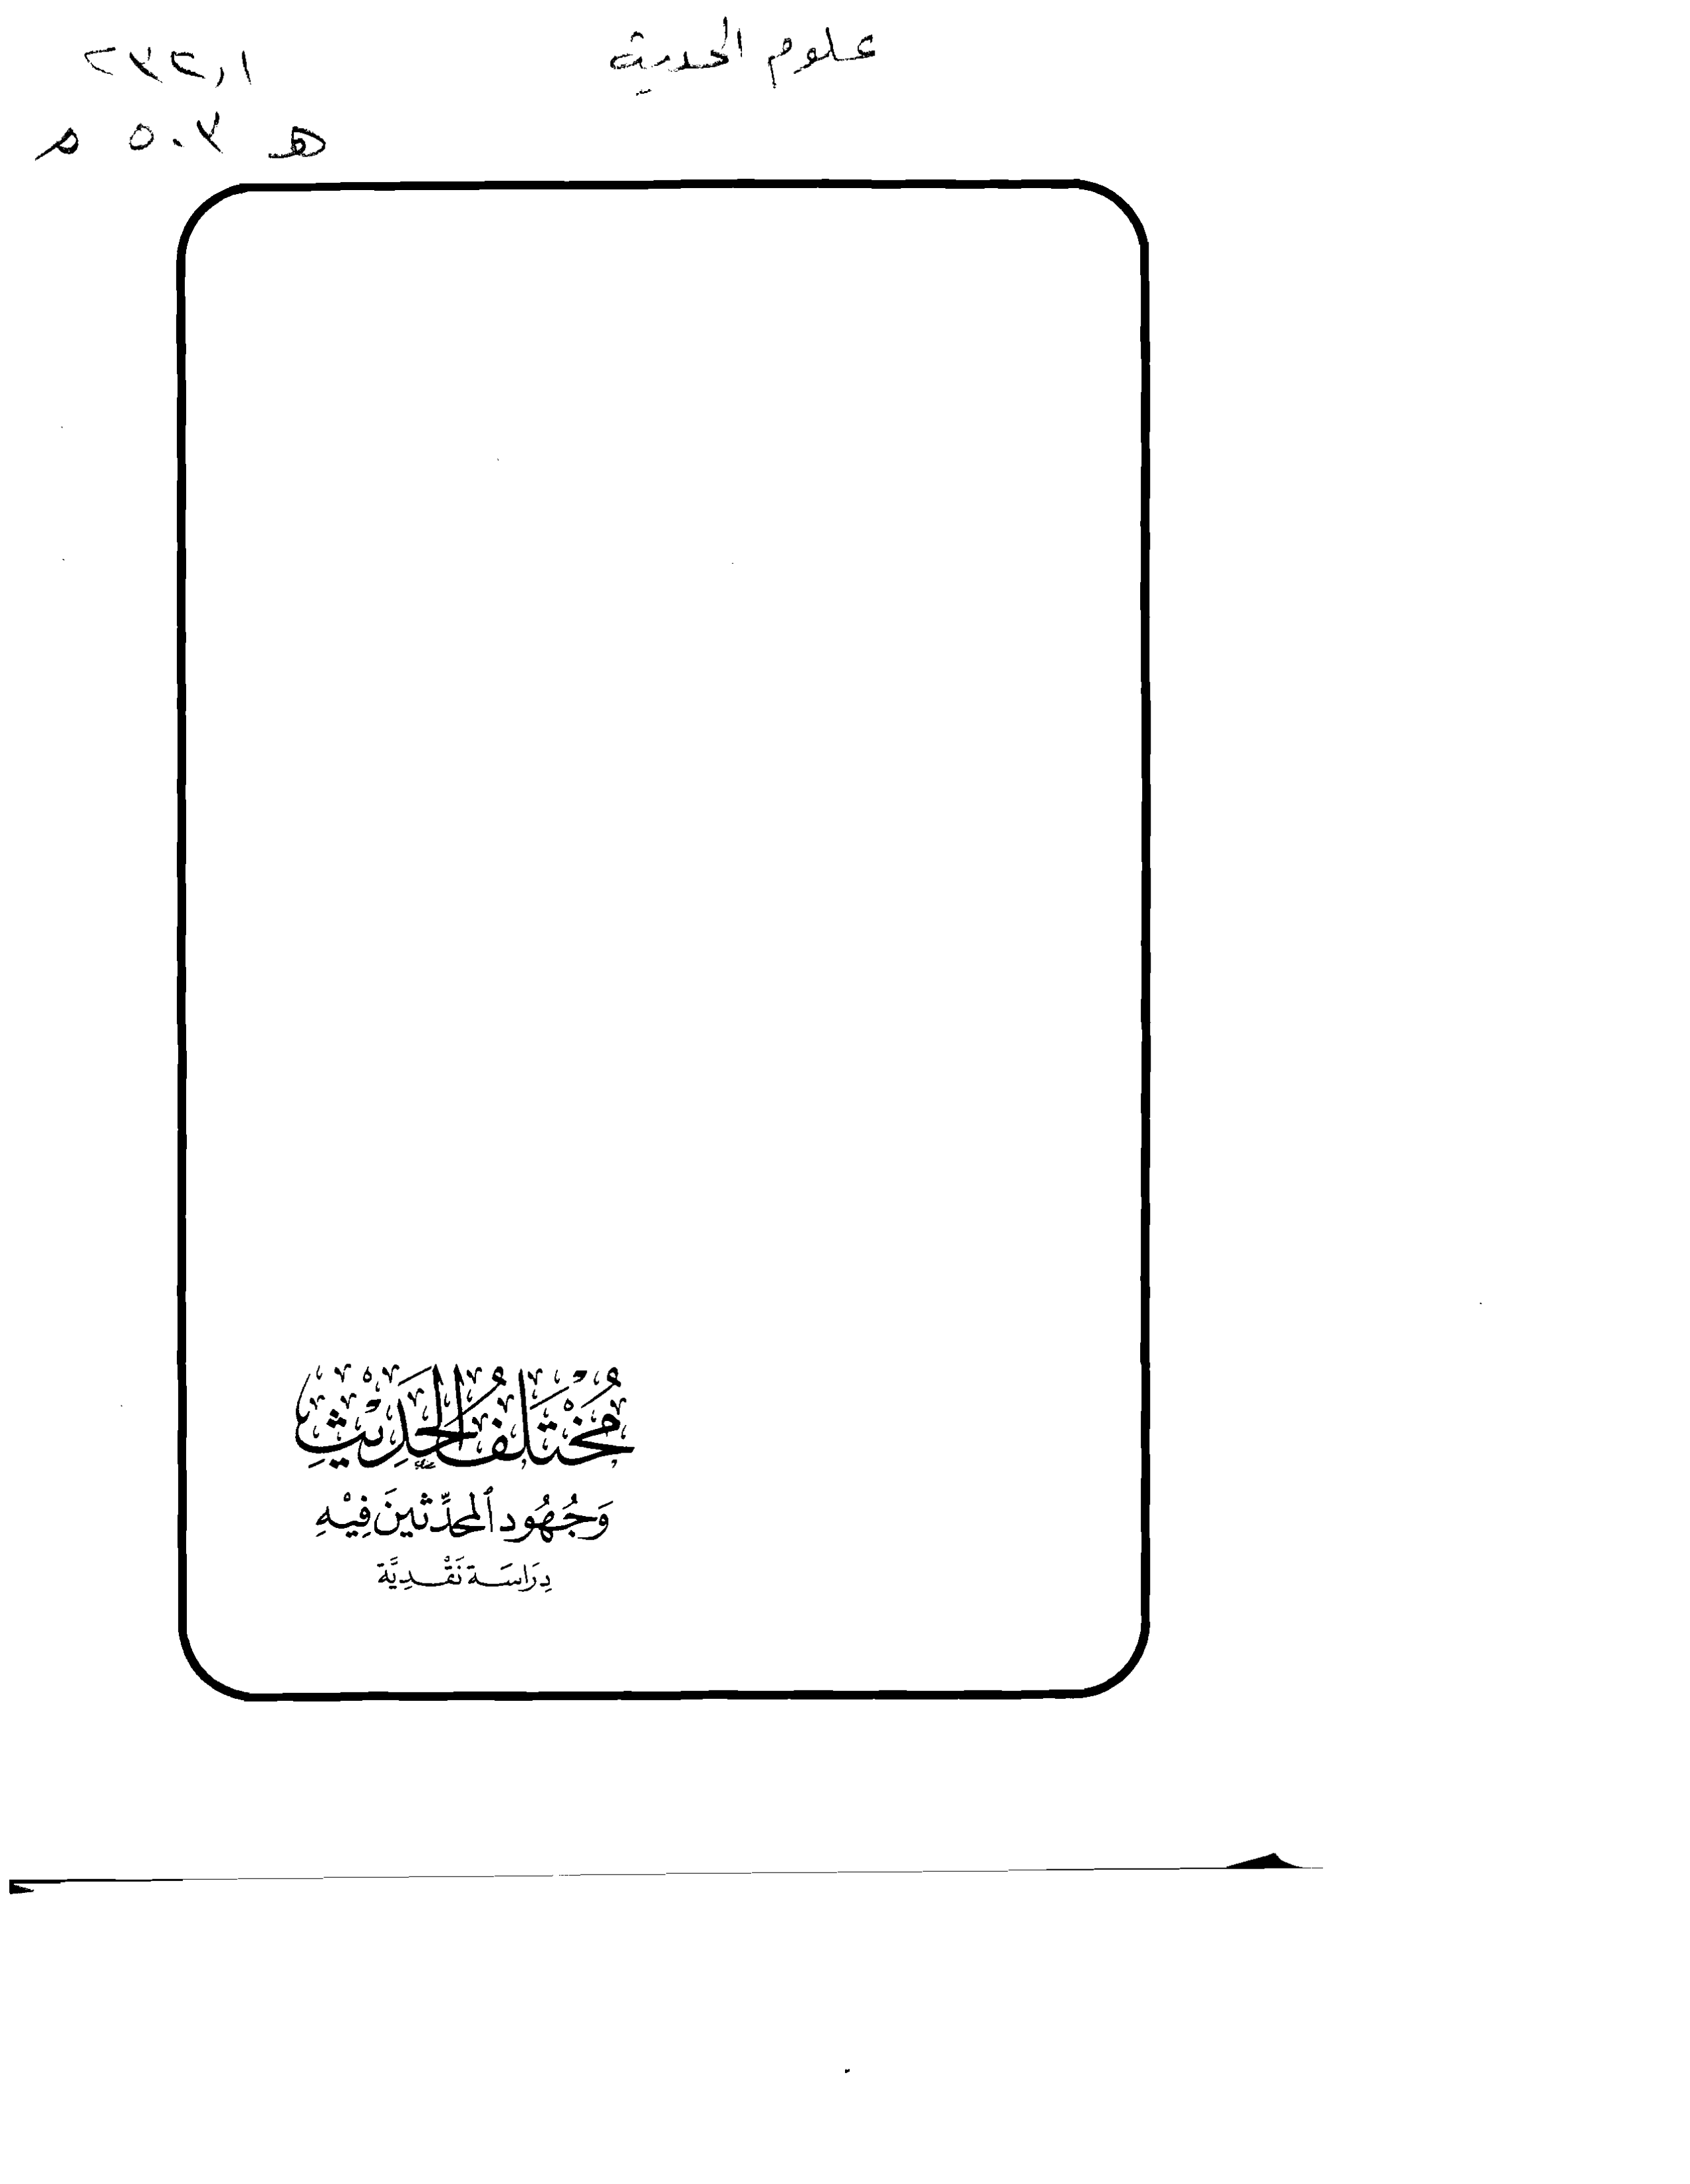 علوم الحديث
٢٣٢٫١
هـ ٥٠٧ م
مُخْتَلِفُ الحَدِيْثِ
وَجُهُود ٱلمحدِّثينَ فِيْهِ
دِرَاسَة نَقْدِيَّة